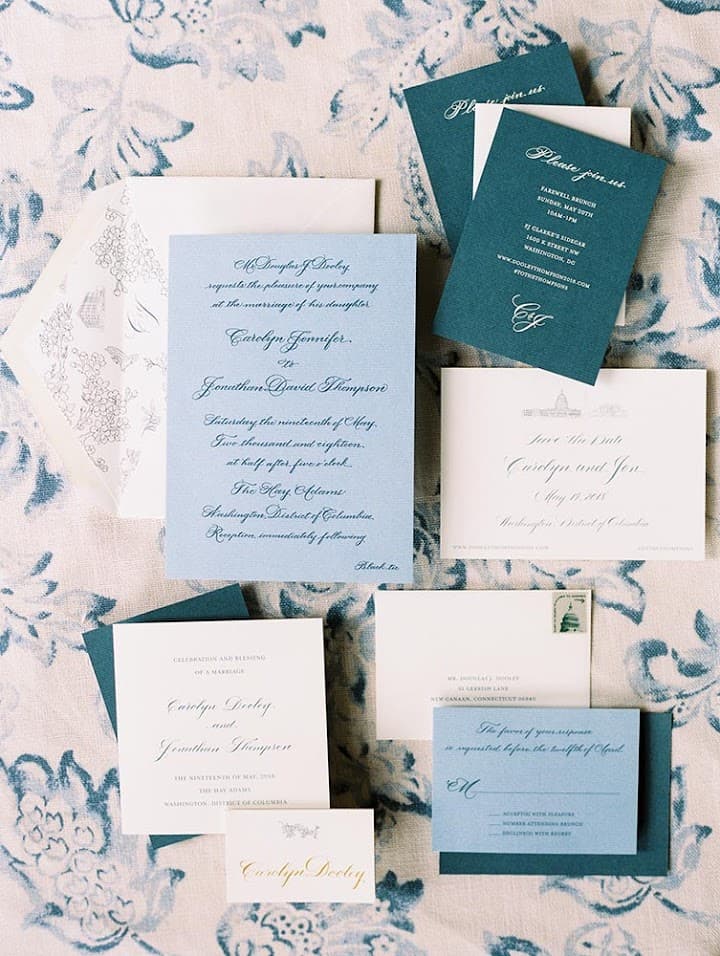 Please join us
Please join us.
FAREWELL BRUNCH
SUNDAY, MAY 20TH
10AM-1PM
PJ CLARKE'S SIDECAR
1600 K STREET NW
WASHINGTON, DC
WWW.DOOLEYTHOMPSON2018.COM
#TOTHETHOMPSONS
C&J
Mr. Douglas J. Dooley
requests the pleasure of your company
at the marriage of his daughter
Carolyn Jennifer
to
Jonathan David Thompson
Saturday, the nineteenth of May
Two thousand and eighteen
at half after five o'clock
The Hay Adams
Washington, District of Columbia
Reception immediately following
Black tie
Save the Date
Carolyn and Jon
May 19, 2018
Washington District of Columbia
WWW.DOOLEYTHOMPSON2018.COM
#TOTHETHOMPSONS
CELEBRATION AND BLESSING
OF A MARRIAGE
Carolyn Dooley
and
Jonathan Thompson
THE NINETEENTH OF MAY, 2018
THE HAY ADAMS
WASHINGTON, DISTRICT OF COLUMBIA
Carolyn Dooley
MR. DOUGLAS J. DOOLEY
LANE
NEW CANAAN, CONNECTICUT 06840
The favor of your response
is requested before the twelfth of April
M
ACCEPT(S) WITH PLEASURE
NUMBER ATTENDING BRUNCH
DECLINE(S) WITH REGRET